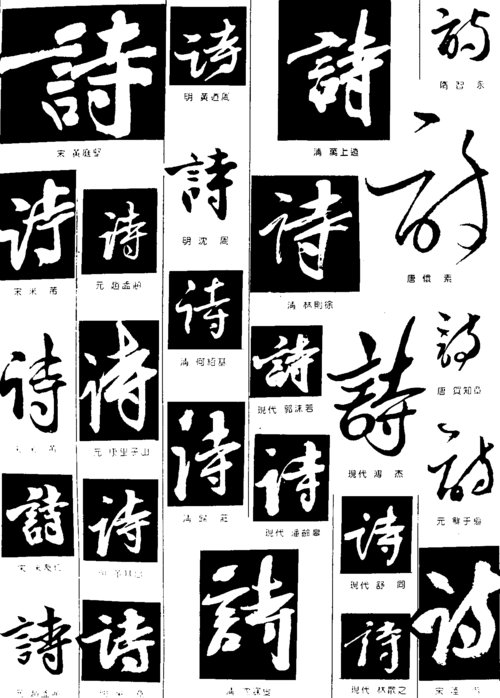 詩
隋 智 永
詩
唐 懷 素
詩
唐 賀知章
詩
元 鮮于樞
詩
宋
詩
清 萬上遴
詩
清 林則徐
詩
現代 郭沫若
詩
現代 溥 杰
詩
現代 潘齡皋
詩
現代 舒 同
詩
現代 林散之
詩
清
詩
明 黃道周
詩
明 沈 周
詩
清 何紹基
詩
清
詩
元 趙孟頫
詩
元 康里子山
詩
詩
詩
宋 黃庭堅
詩
宋 米 芾
詩
詩
宋
詩
元 趙孟頫